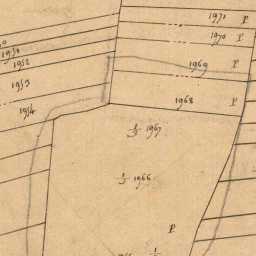 1971 P
1970 P
1950
1952
1969 P
1953
1968 P
1954
1/2 1967
1/2 1966
P